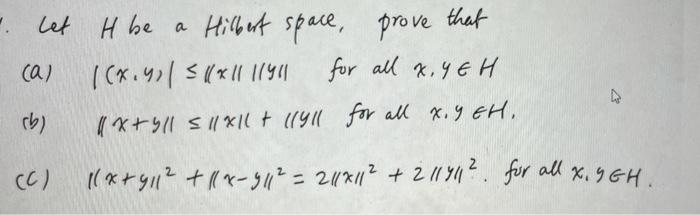 1. Let H be a Hilbert space, prove that
(a) |(x,y)| ≤ ||x|| ||y|| for all x,y ∈ H
(b) ||x+y|| ≤ ||x|| + ||y|| for all x,y ∈ H.
(c) ||x+y||² + ||x-y||² = 2||x||² + 2||y||². for all x,y ∈ H.